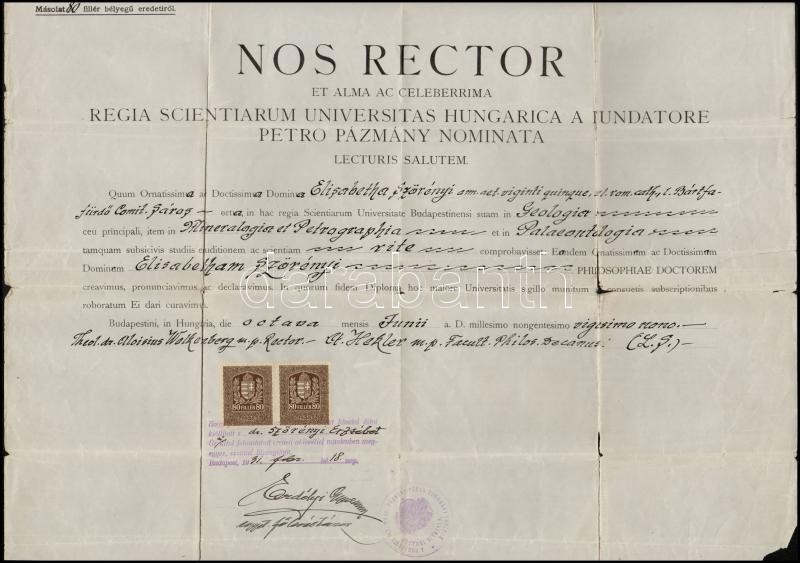 Másolat 80 fillér bélyegű eredetiről.
NOS RECTOR
ET ALMA AC CELEBERRIMA
REGIA SCIENTIARUM UNIVERSITAS HUNGARICA A FUNDATORE
PETRO PÁZMÁNY NOMINATA
LECTURIS SALUTEM.
Quum Ornatissima ac Doctissima Domina Elisabetha Szörényi ann. aet. viginti quinque, rel. rom. cath., e Bártfa-
fürdő Comit. Sáros orta, in hac regia Scientiarum Universitate Budapestinensi suam in Geologia
ceu principali, item in Mineralogia et Petrographia et in Palaeontologia
tamquam subsicivis studiis eruditionem ac scientiam rite comprobavisset: Eandem Ornatissimam ac Doctissimam
Dominam Elisabetham Szörényi PHILOSOPHIAE DOCTOREM
creavimus, pronunciavimus ac declaravimus. In quorum fidem Diploma hoc maiore Universitatis sigillo munitum et consuetis subscriptionibus
roboratum Ei dari curavimus.
Budapestini, in Hungaria, die octava mensis Junii a. D. millesimo nongentesimo vigesimo nono.—
Theol. dr. Aloisius Wolkenberg m. p. Rector.— A. Hekler m. p. Facult. Philos. Decanus. (L. S.)—
darabanth
80 FILLÉR 80
80 FILLÉR 80
dr. Szörényi Erzsébet
Budapest, 1931. febr. hó 18.
Erdélyi